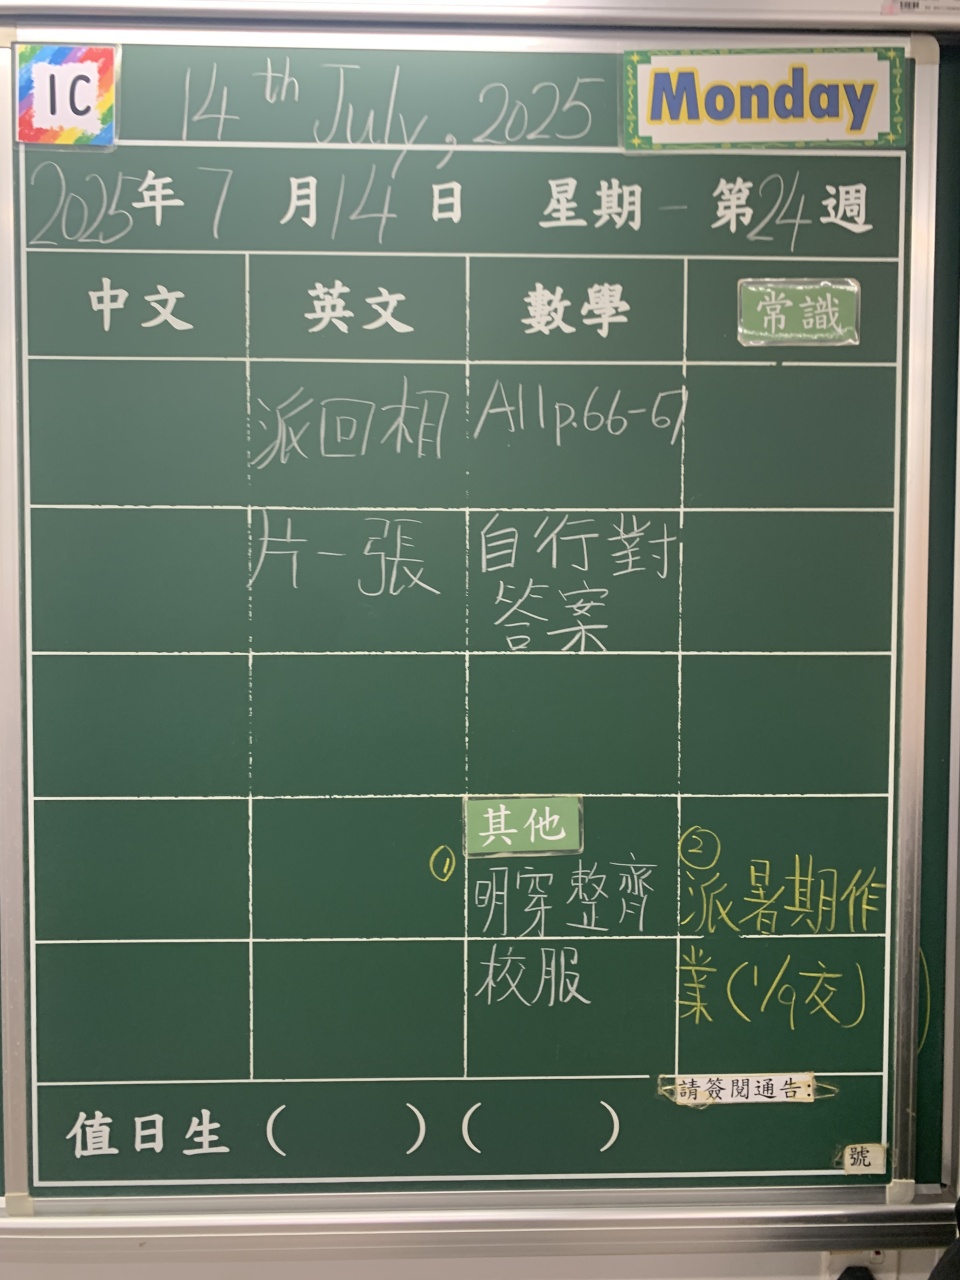 1C
14th July, 2025
Monday
2025年7月14日 星期一 第24週
中文 英文 數學 常識
派回相
片一張
A11 p.66-67
自行對
答案
其他
① 明穿整齊
校服
② 派暑期作
業(1/9交)
請簽閱通告:
值日生 ( ) ( )
號